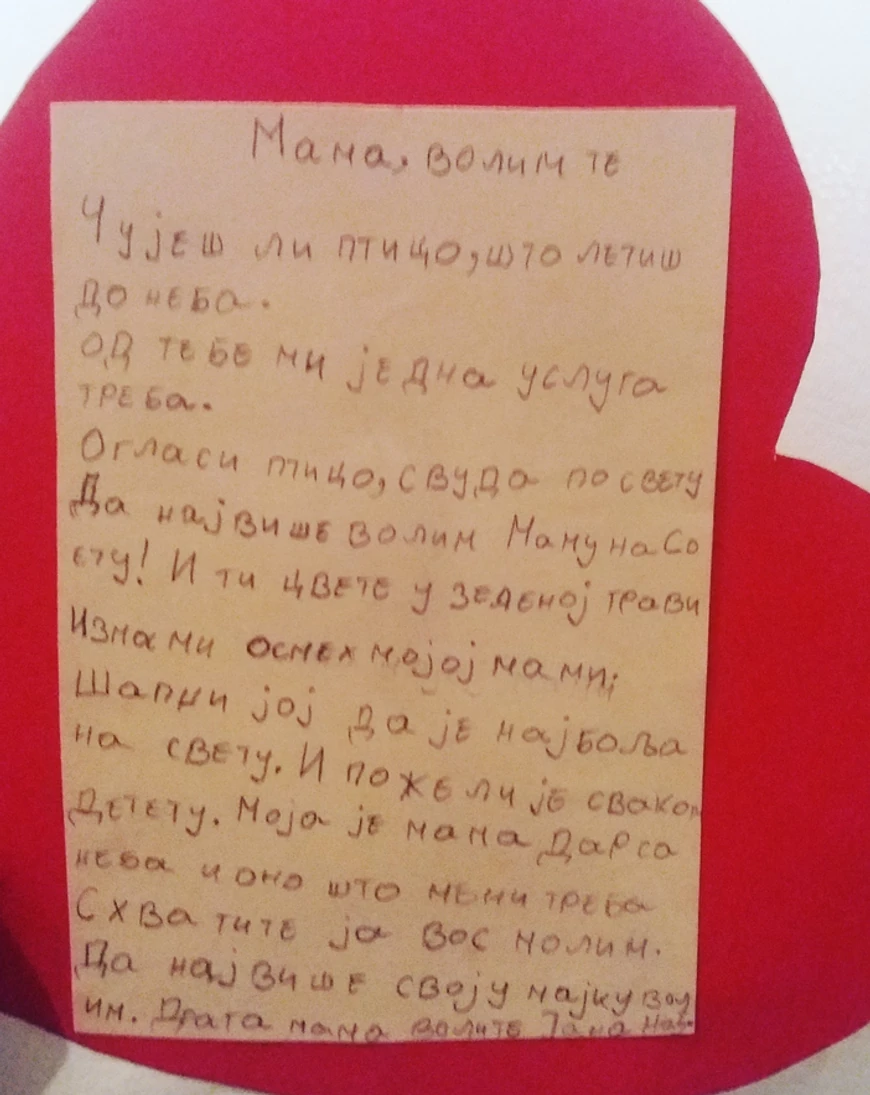 Мама, волим те
Чујеш ли птицо, што летиш
до неба.
од тебе ми једна услуга
треба.
Огласи птицо, свуда по свету
Да највише волим Маму на со
ету! И ти цвете у зеленој трави
Измами осмех мојој мами;
Шапни јој да је најбоља
на свету. И пожели је сваком
детету. Моја је мама дар са
неба и оно што мени треба
Схватите ја вос молим.
Да највише своју мајку вол
им. Драга мама волите Јана